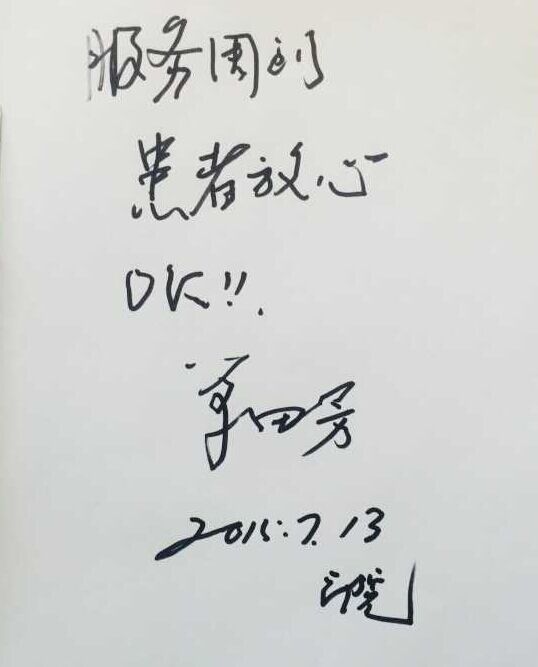 服务周到
患者放心
OK!!.
2015.7.13